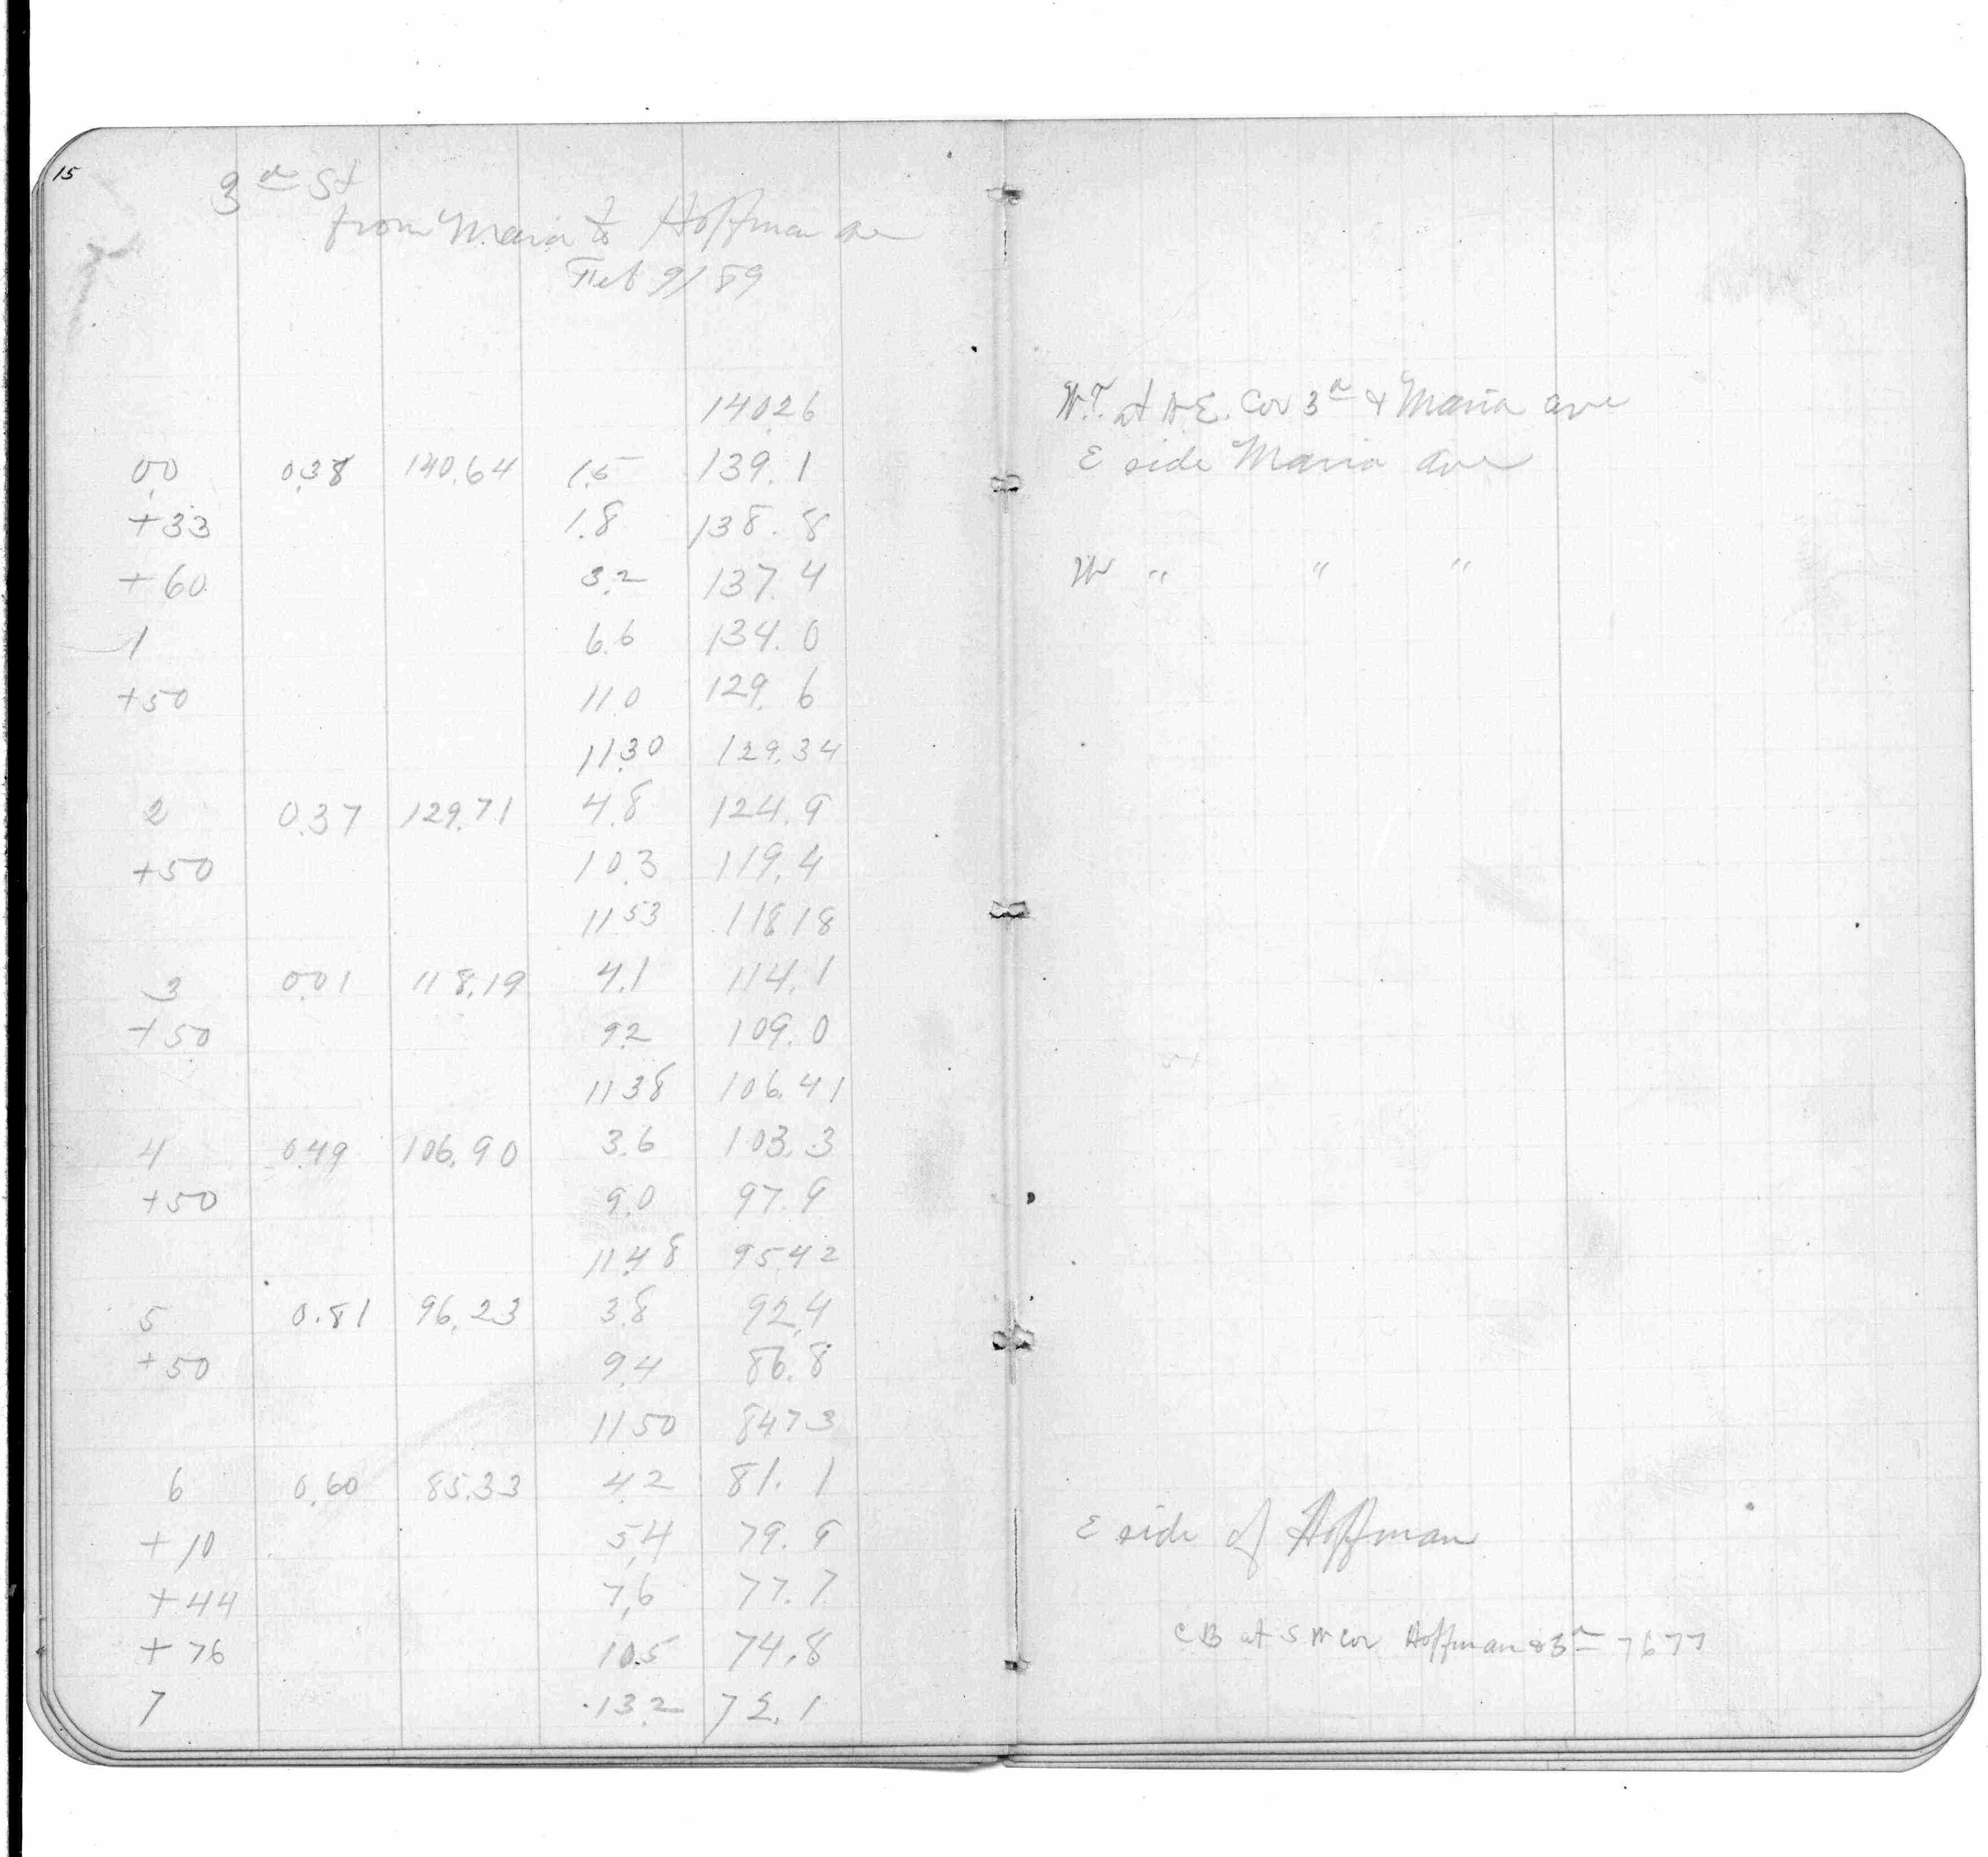 15
3d St
from Maria to Hoffman ave
Feb 9/89
140.26 W.T. at N.E. Cor 3d & Maria ave
0.0 0.38 140.64 1.5 139.1 E side Maria Ave
+33 1.8 138.8
+60 3.2 137.4 W " " "
1 6.6 134.0
+50 11.0 129.6
11.30 129.34
2 0.37 129.71 4.8 124.9
+50 10.3 119.4
11.53 118.18
3 0.01 118.19 4.1 114.1
+50 9.2 109.0
11.38 106.41
4 0.49 106.90 3.6 103.3
+50 9.0 97.9
11.48 95.42
5 0.81 96.23 3.8 92.4
+50 9.4 86.8
11.50 84.73
6 0.60 85.33 4.2 81.1
+10 5.4 79.9 E side of Hoffman
+44 7.6 77.7
+76 10.5 74.8 CB at S W Cor Hoffman & 3d 76 77
7 13.2 72.1